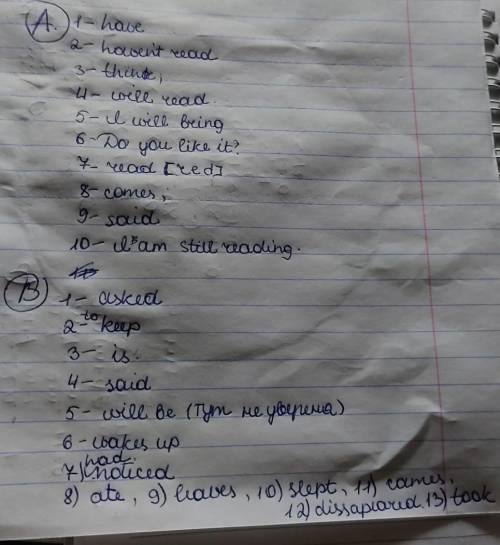 A.
1- have
2- haven't read
3- think,
4- will read.
5- I will bring
6- Do you like it?
7- read [red]
8- comes;
9- said
10- I am still reading.
B
1- asked
2- to keep
3- is.
4- said
5- will be (Тут не уверена)
6- wakes up
7) had noticed
8) ate, 9) leaves, 10) slept, 11) comes,
12) dissapiared, 13) took